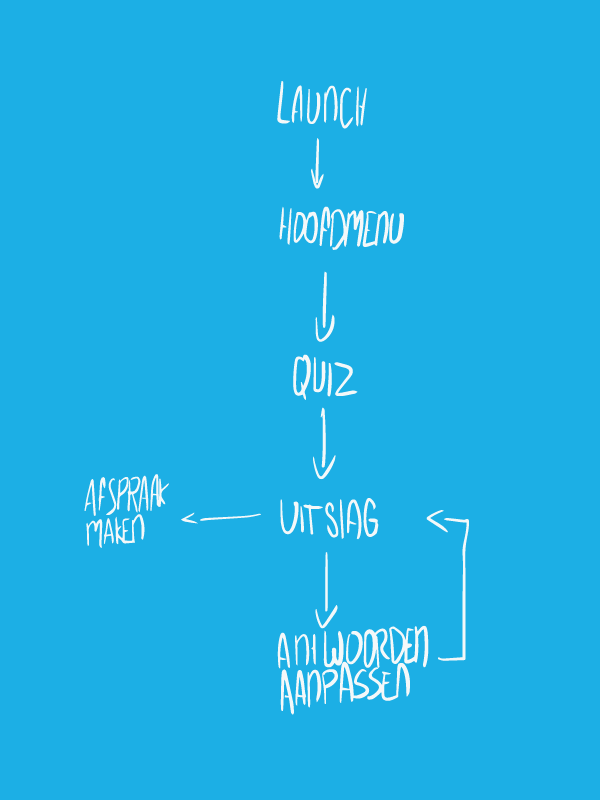 LAUNCH
HOOFDMENU
QUIZ
UITSLAG
AFSPRAAK
MAKEN
ANTWOORDEN
AANPASSEN